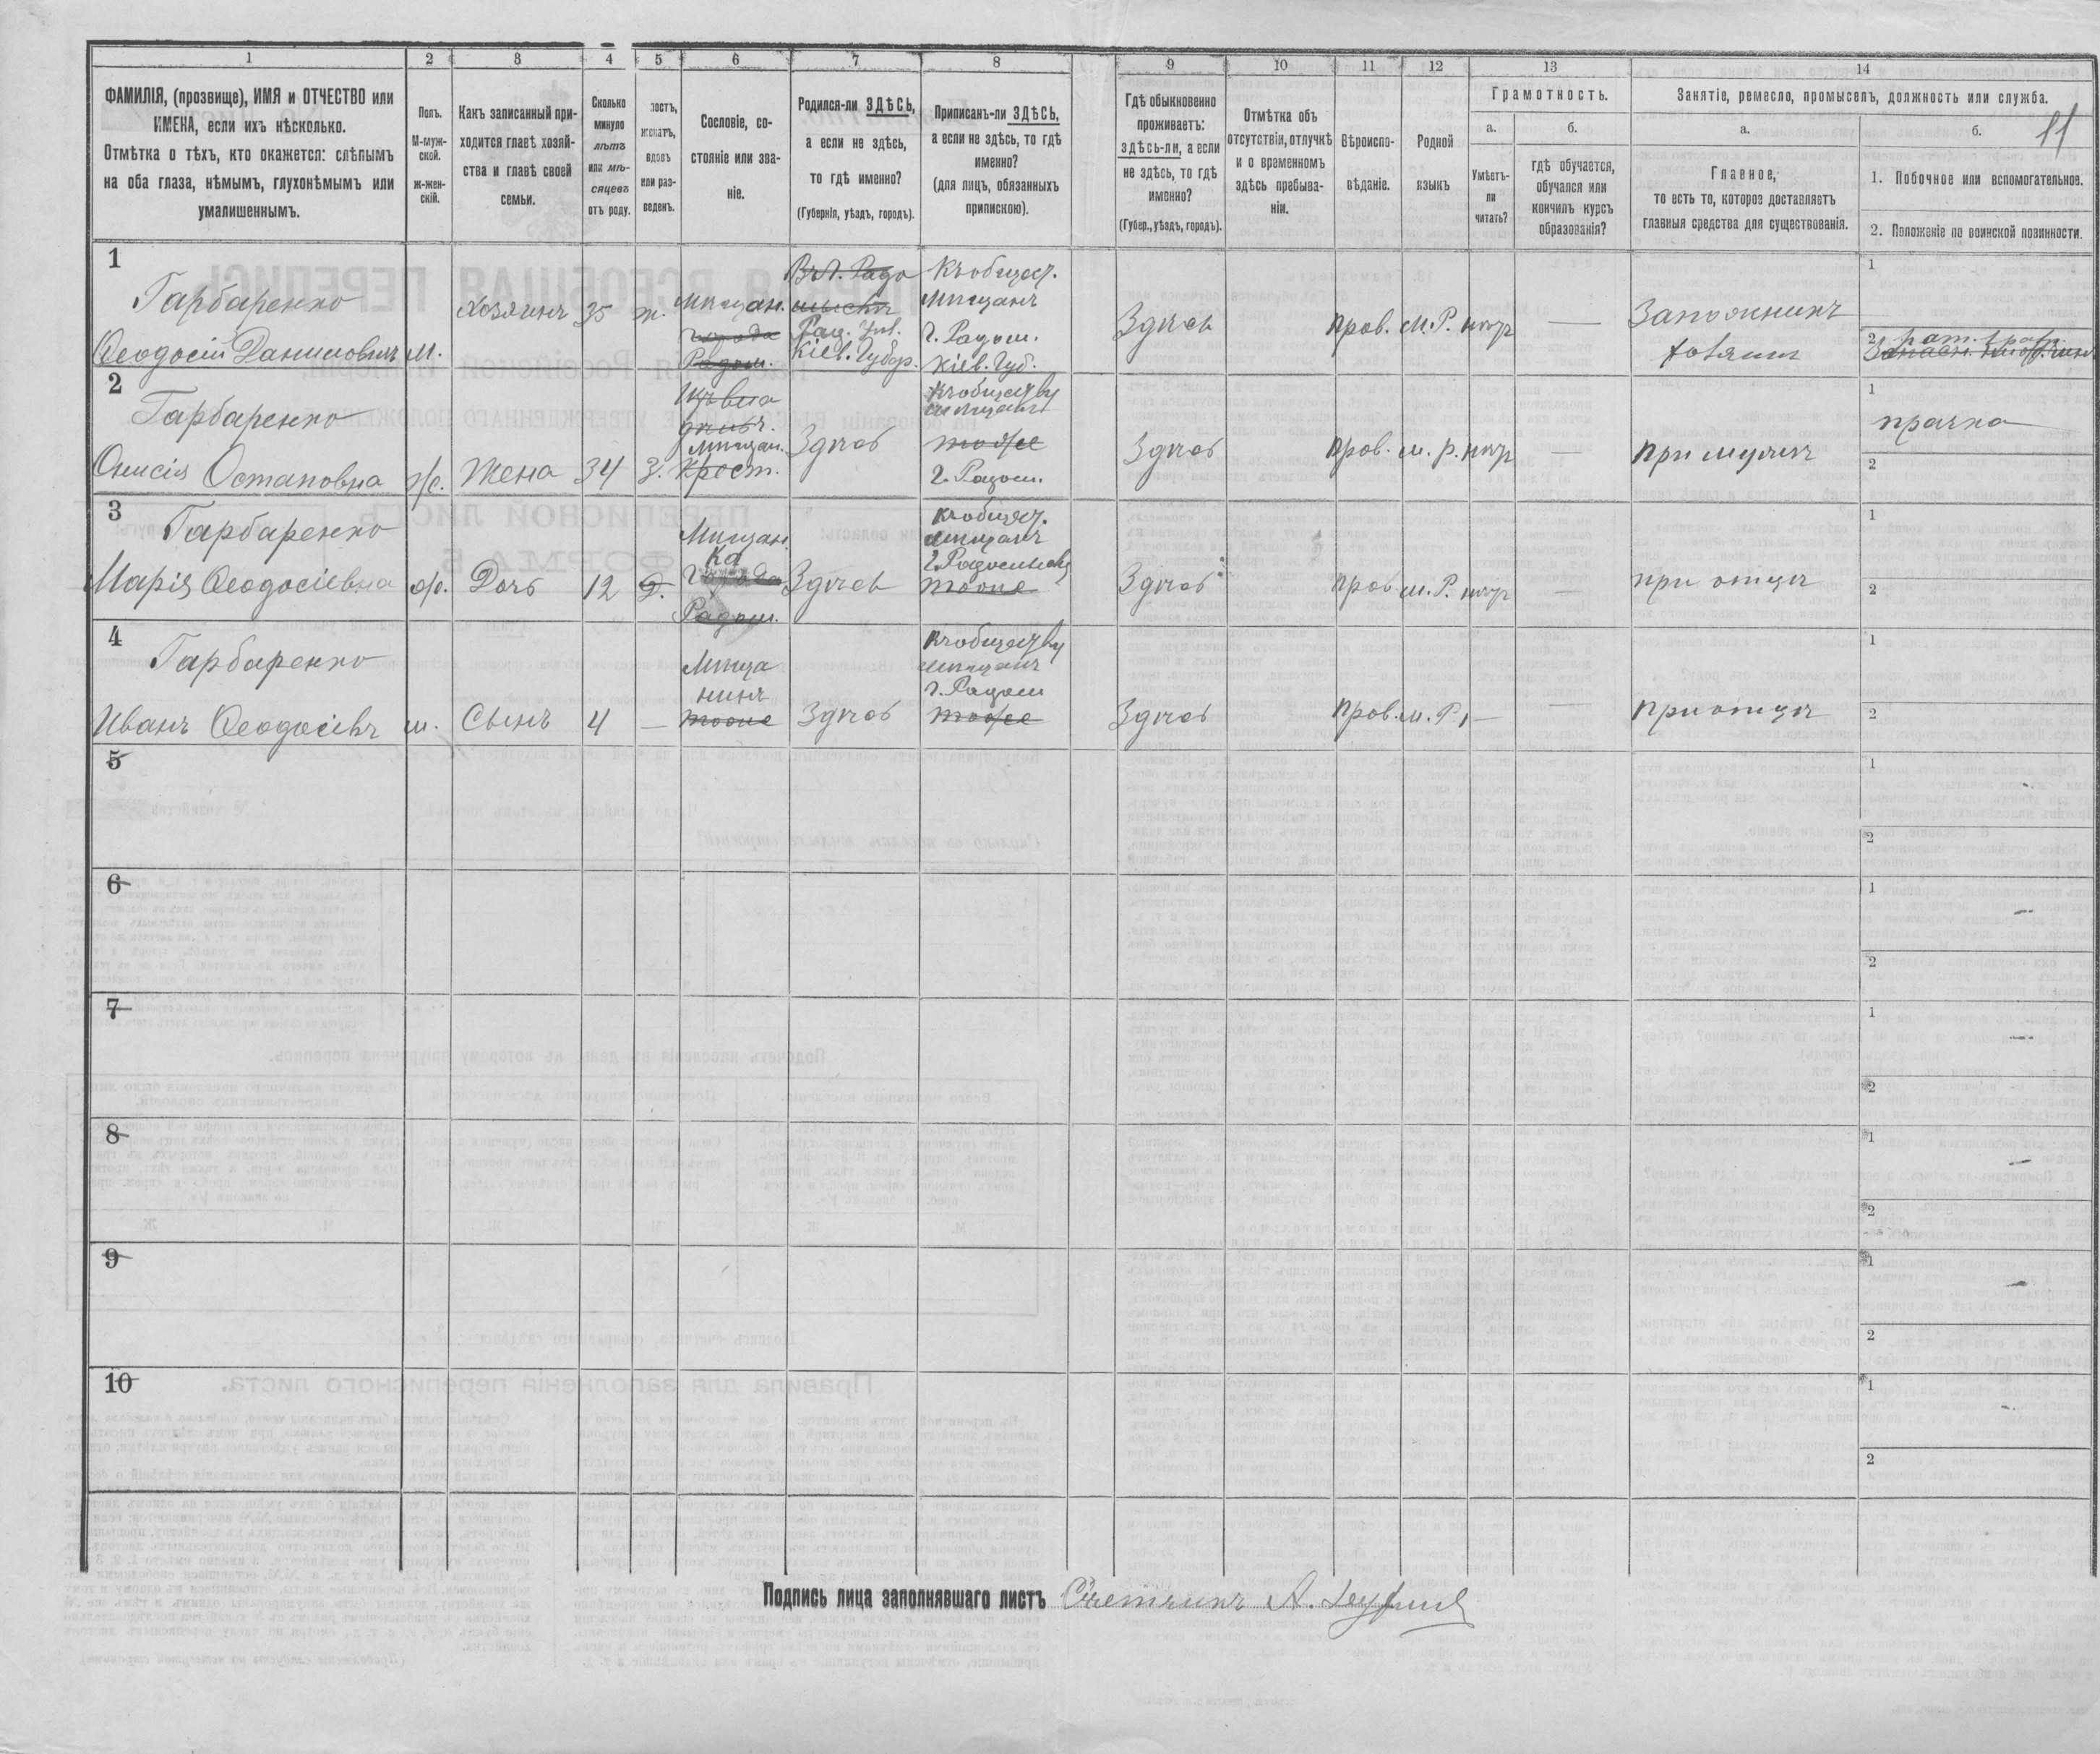 1 2 3 4 5 6 7 8 9 10 11 12 13 14
ФАМИЛІЯ, (прозвище), ИМЯ и ОТЧЕСТВО или
ИМЕНА, если ихъ нѣсколько.
Отмѣтка о тѣхъ, кто окажется: слѣпымъ
на оба глаза, нѣмымъ, глухонѣмымъ или
умалишеннымъ.
Полъ.
М-муж-
ской.
ж-жен-
скій.
Какъ записанный при-
ходится главѣ хозяй-
ства и главѣ своей
семьи.
Сколько
минуло
лѣтъ
или мѣ-
сяцевъ
отъ роду.
лостъ,
женатъ,
вдовъ
или раз-
веденъ.
Сословіе, со-
стояніе или зва-
ніе.
Родился-ли ЗДѢСЬ,
а если не здѣсь,
то гдѣ именно?
(Губернія, уѣздъ, городъ).
Приписанъ-ли ЗДѢСЬ,
а если не здѣсь, то гдѣ
именно?
(для лицъ, обязанныхъ
припискою).
Гдѣ обыкновенно
проживаетъ:
здѣсь-ли, а если
не здѣсь, то гдѣ
именно?
(Губер., уѣздъ, городъ).
Отмѣтка объ
отсутствіи, отлучкѣ
и о временномъ
здѣсь пребыва-
ніи.
Вѣроиспо-
вѣданіе.
Родной
языкъ
Грамотность.
а.
Умѣетъ-
ли
читать?
б.
гдѣ обучается,
обучался или
кончилъ курсъ
образованія?
Занятіе, ремесло, промыселъ, должность или служба.
11
а.
Главное,
то есть то, которое доставляетъ
главныя средства для существованія.
б.
1. Побочное или вспомогательное.
2. Положеніе по воинской повинности.
1
Гарбаренко
Ѳеодосій Даниловичъ
м.
Хозяинъ
35
ж.
Мѣщан.
города
Радом.
Въ г. Радо
мыслѣ
Рад. Уѣз.
Кіев. Губер.
Къ общест.
Мѣщанъ
г. Радом.
Кіев. Губ.
Здѣсь
прав.
М. Р.
нѣтъ
—
1
2
2
Гарбаренко
Онисія Остаповна
ж.
Жена
34
З.
Мѣщан.
Крест.
Здѣсь
Къ обществу
мѣщанъ
тоже
г. Радом.
Здѣсь
прав.
м. р.
нѣтъ
—
при мужѣ
1
прачка
2
3
Гарбаренко
Марія Ѳеодосіевна
ж.
Дочь
12
Д.
Мѣщан
ка
города
Радом.
Здѣсь
Къ общест.
мѣщанъ
тоже
Здѣсь
прав.
м. Р.
нѣтъ
—
при отцѣ
1
2
4
Гарбаренко
Иванъ Ѳеодосіевъ
м.
Сынъ
4
—
Мѣща
нинъ
тоже
Здѣсь
Къ обществу
мѣщанъ
г. Радом
тоже
Здѣсь
прав.
м. Р.
—
—
при отцѣ
1
2
5
1
2
6
1
2
7
1
2
8
1
2
9
1
2
10
1
2
Подпись лица заполнявшаго листъ Счетчикъ А.